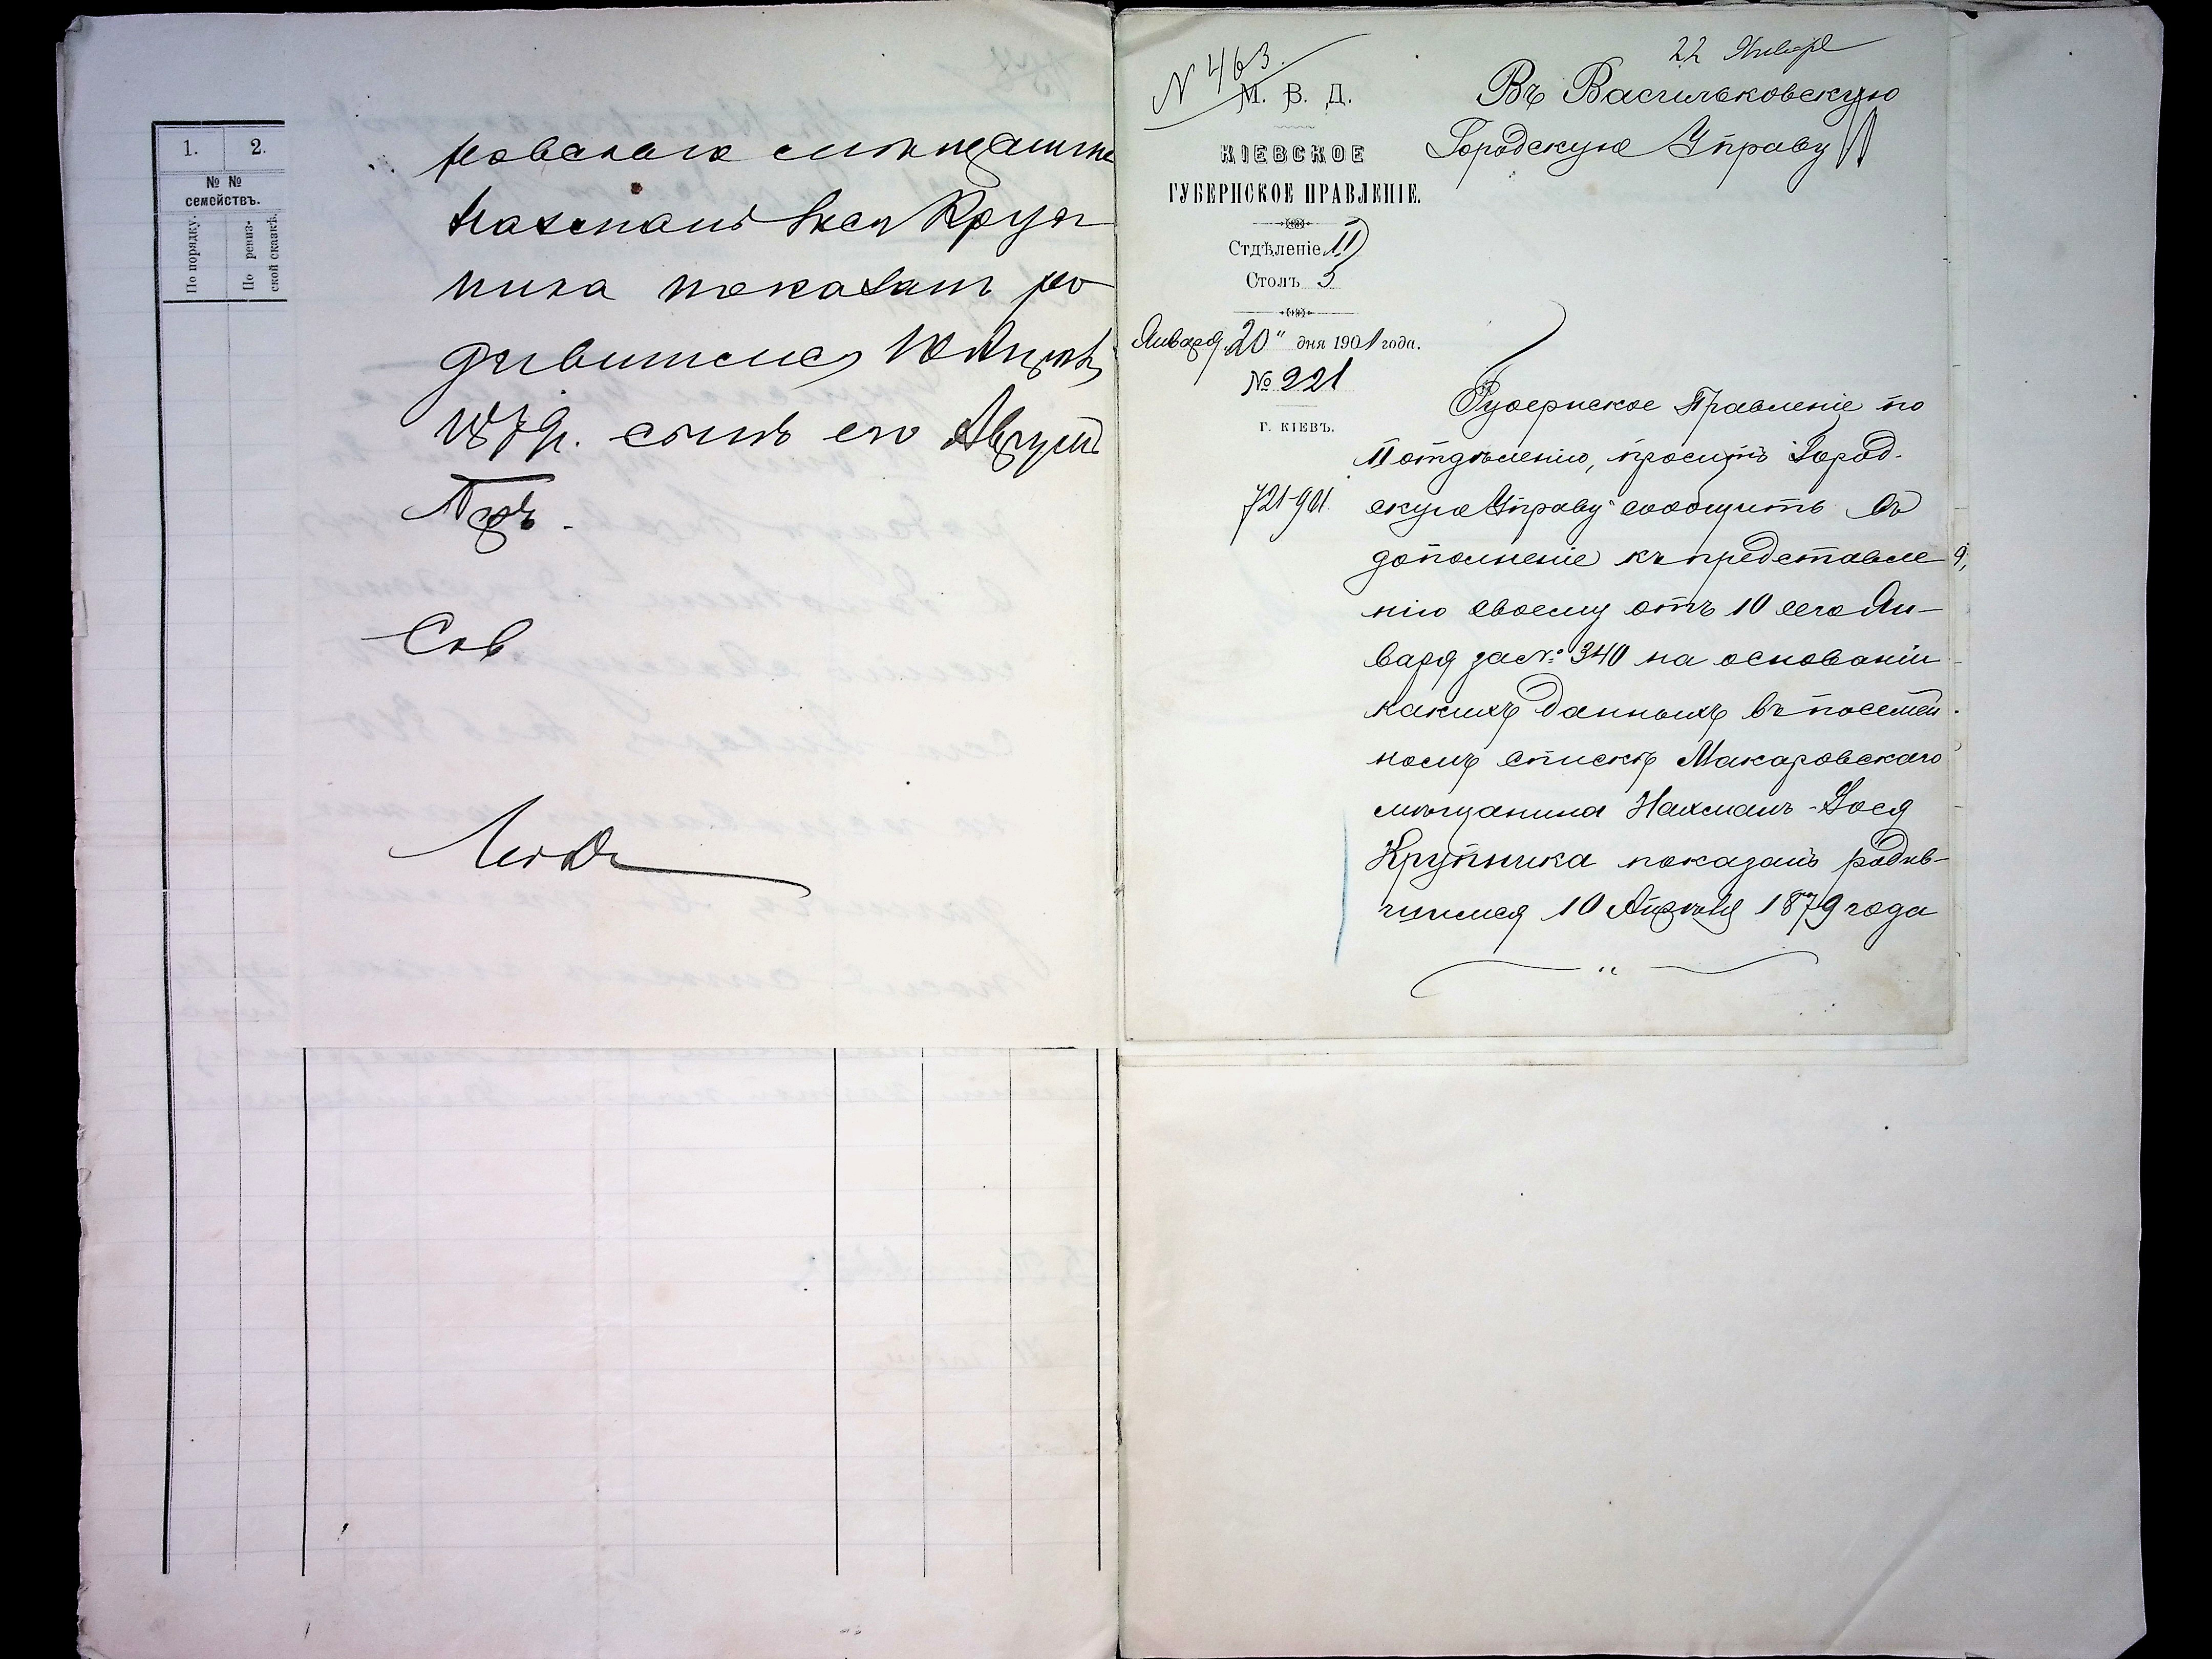 1. 2.
№ № семействъ.
По порядку.
По ревиз-
ской сказкѣ.
ровскаго мѣщанина
Нахмана Іося Круп
ника показанъ ро
дившимся 10 Апрѣля
1879г. сынъ его
N 463.
М. В. Д.
КІЕВСКОЕ
ГУБЕРНСКОЕ ПРАВЛЕНІЕ.
Отдѣленіе II
Столъ 5
Января 20 " дня 1901 года.
№ 221
Г. КІЕВЪ.
721-901
22 Января
Въ Васильковскую
Городскую Управу
Губернское Правленіе по
II отдѣленію, проситъ Город-
скую Управу сообщить въ
дополненіе къ представле
нію своему отъ 10 сего Ян-
варя за №: 340 на основаніи
какихъ данныхъ въ посемей
номъ спискѣ Макаровскаго
мѣщанина Нахманъ-Іося
Крупника показанъ родив-
шимся 10 Апрѣля 1879 года